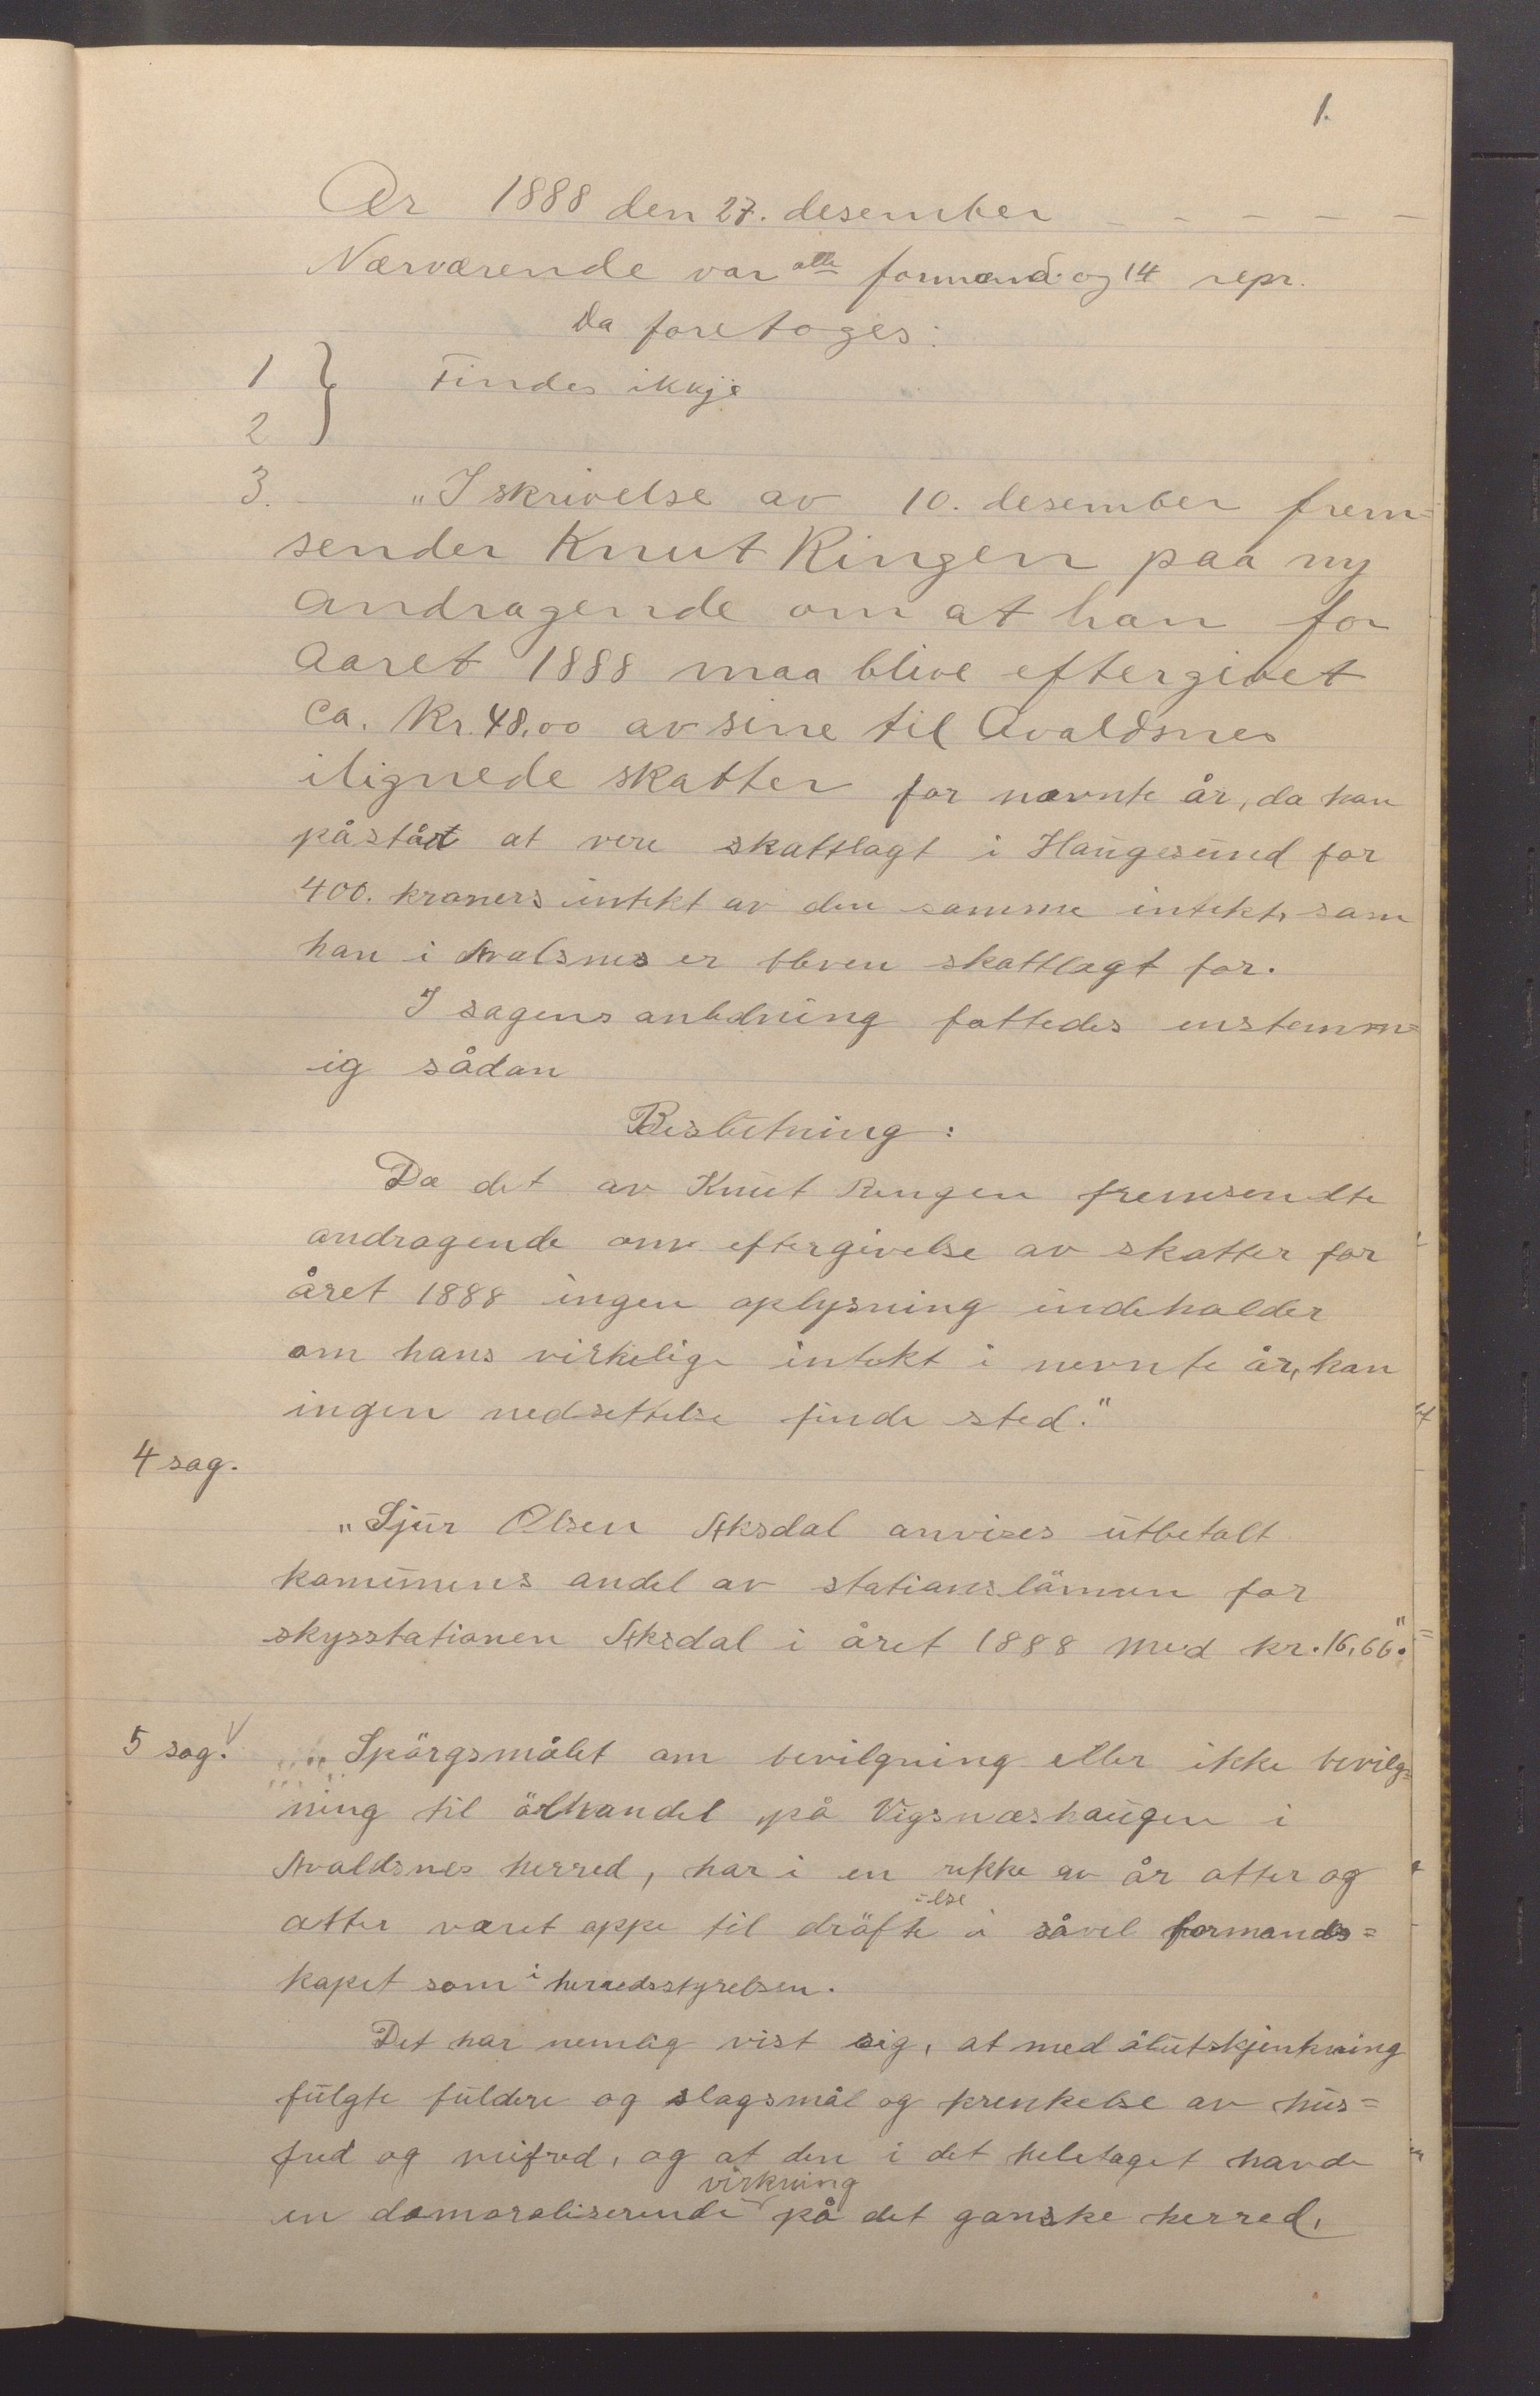 1.
Aar 1888 den 27. desember - - - - -
Nærværende var alle formænd og 14 repr.
Da foretoges:
1 } Findes ikkje
2
3. „I skrivelse av 10. desember frem=
sender Knut Ringen paa ny
andragende om at han for
Aaret 1888 maa blive eftergivet
ca. Kr. 48,00 av sine til Avaldsnes
ilignede skatter for nævnte år, da han
påstår at vere skattlagt i Haugesund for
400. kroners intekt av den samme intekt, som
han i Avalsnes er bleven skattlagt for.
I sagens anledning fattedes enstemm=
ig sådan
Beslutning:
Da det av Knut Ringen fremsendte
andragende om eftergivelse av skatter for
året 1888 ingen oplysning indeholder
om hans virkelige intekt i nevnte år, kan
ingen nedsettelse finde sted."
4 sag.
„Sjur Olsen Aksdal anvises utbetalt
kommunens andel av stationslönnen for
skysstationen Aksdal i året 1888 med kr. 16,66."
5 sag. „Spörgsmålet om bevilgning eller ikke bevilg=
ning til ölhandel på Vigsnæshaugen i
Avaldsnes herred, har i en rekke av år atter og
atter været oppe til dröftelse i såvel formands=
kapet som i herredsstyrelsen.
Det har nemlig vist sig, at med ölutskjenkning
fulgte fulderi og slagsmål og krenkelse av hus=
fred og , og at den i det heletaget havde
en demoraliserende virkning på det ganske herred,